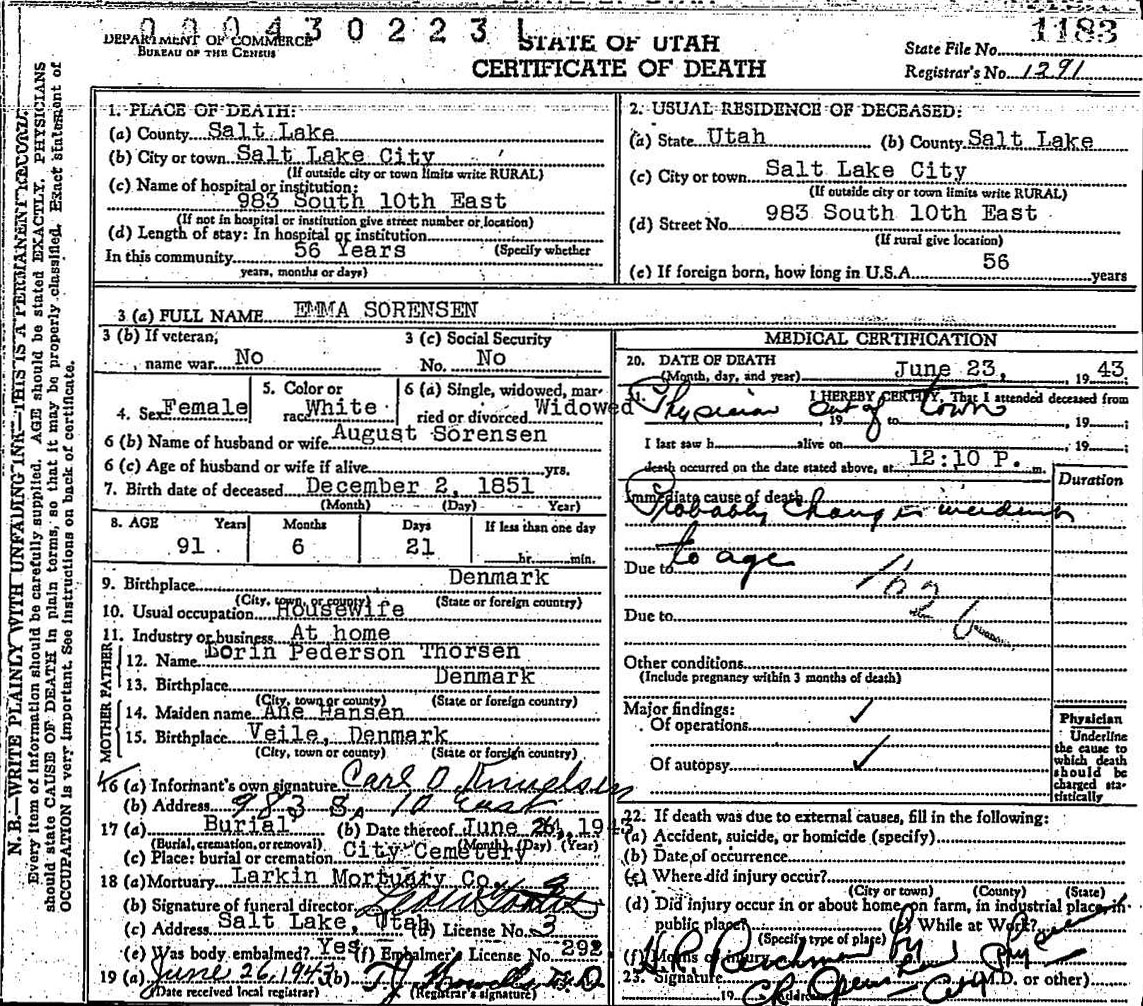 000430223L
1183
DEPARTMENT OF COMMERCE
BUREAU OF THE CENSUS
STATE OF UTAH
CERTIFICATE OF DEATH
State File No.
Registrar's No. 1291
N. B.—WRITE PLAINLY WITH UNFADING INK—THIS IS A PERMANENT RECORD.
Every item of information should be carefully supplied. AGE should be stated EXACTLY. PHYSICIANS
should state CAUSE OF DEATH in plain terms, so that it may be properly classified. Exact statement of
OCCUPATION is very important. See instructions on back of certificate.
1. PLACE OF DEATH:
(a) County Salt Lake
(b) City or town Salt Lake City
(If outside city or town limits write RURAL)
(c) Name of hospital or institution:
983 South 10th East
(If not in hospital or institution give street number or location)
(d) Length of stay: In hospital or institution
(Specify whether
In this community 56 Years
years, months or days)
2. USUAL RESIDENCE OF DECEASED:
(a) State Utah (b) County Salt Lake
(c) City or town Salt Lake City
(If outside city or town limits write RURAL)
(d) Street No. 983 South 10th East
(If rural give location)
(e) If foreign born, how long in U.S.A. 56 years
3 (a) FULL NAME EMMA SORENSEN
3 (b) If veteran,
name war No
3 (c) Social Security
No. No
4. Sex Female
5. Color or
race White
6 (a) Single, widowed, mar-
ried or divorced Widowed
6 (b) Name of husband or wife August Sorensen
6 (c) Age of husband or wife if alive yrs.
7. Birth date of deceased December 2, 1851
(Month) (Day) Year)
8. AGE Years Months Days If less than one day
91 6 21 hr. min.
9. Birthplace Denmark
(City, town, or county) (State or foreign country)
10. Usual occupation Housewife
11. Industry or business At home
FATHER
12. Name Lorin Pederson Thorsen
13. Birthplace Denmark
(City, town or county) (State or foreign country)
MOTHER
14. Maiden name Ane Hansen
15. Birthplace Veile, Denmark
(City, town or county) (State or foreign country)
16 (a) Informant's own signature Carl O. Knudsen
(b) Address 983 S. 10 East
17 (a) Burial (b) Date thereof June 26, 1943
(Burial, cremation, or removal) (Month) (Day) (Year)
(c) Place: burial or cremation City Cemetery
18 (a) Mortuary Larkin Mortuary Co.
(b) Signature of funeral director
(c) Address Salt Lake, Utah (d) License No. 3
(e) Was body embalmed? Yes (f) Embalmer's License No. 292
19 (a) June 26, 1943 (b)
(Date received local registrar) (Registrar's signature)
MEDICAL CERTIFICATION
20. DATE OF DEATH
(Month, day, and year) June 23, 19 43
21. I HEREBY CERTIFY, That I attended deceased from
Physician out of town
, 19 to , 19 ;
I last saw h alive on , 19 ;
death occurred on the date stated above, at 12:10 P. m.
Duration
Immediate cause of death
Probably Changes incident
Due to to age
162b
Due to
Other conditions
(Include pregnancy within 3 months of death)
Major findings:
Of operations ✓
Of autopsy ✓
Physician
Underline
the cause
to which death
should be
charged sta-
tistically
22. If death was due to external causes, fill in the following:
(a) Accident, suicide, or homicide (specify)
(b) Date of occurrence
(c) Where did injury occur?
(City or town) (County) (State)
(d) Did injury occur in or about home, on farm, in industrial place, in
public place? While at Work?
(Specify type of place)
(f) Means of injury
23. Signature (M.D. or other)
19 Address City